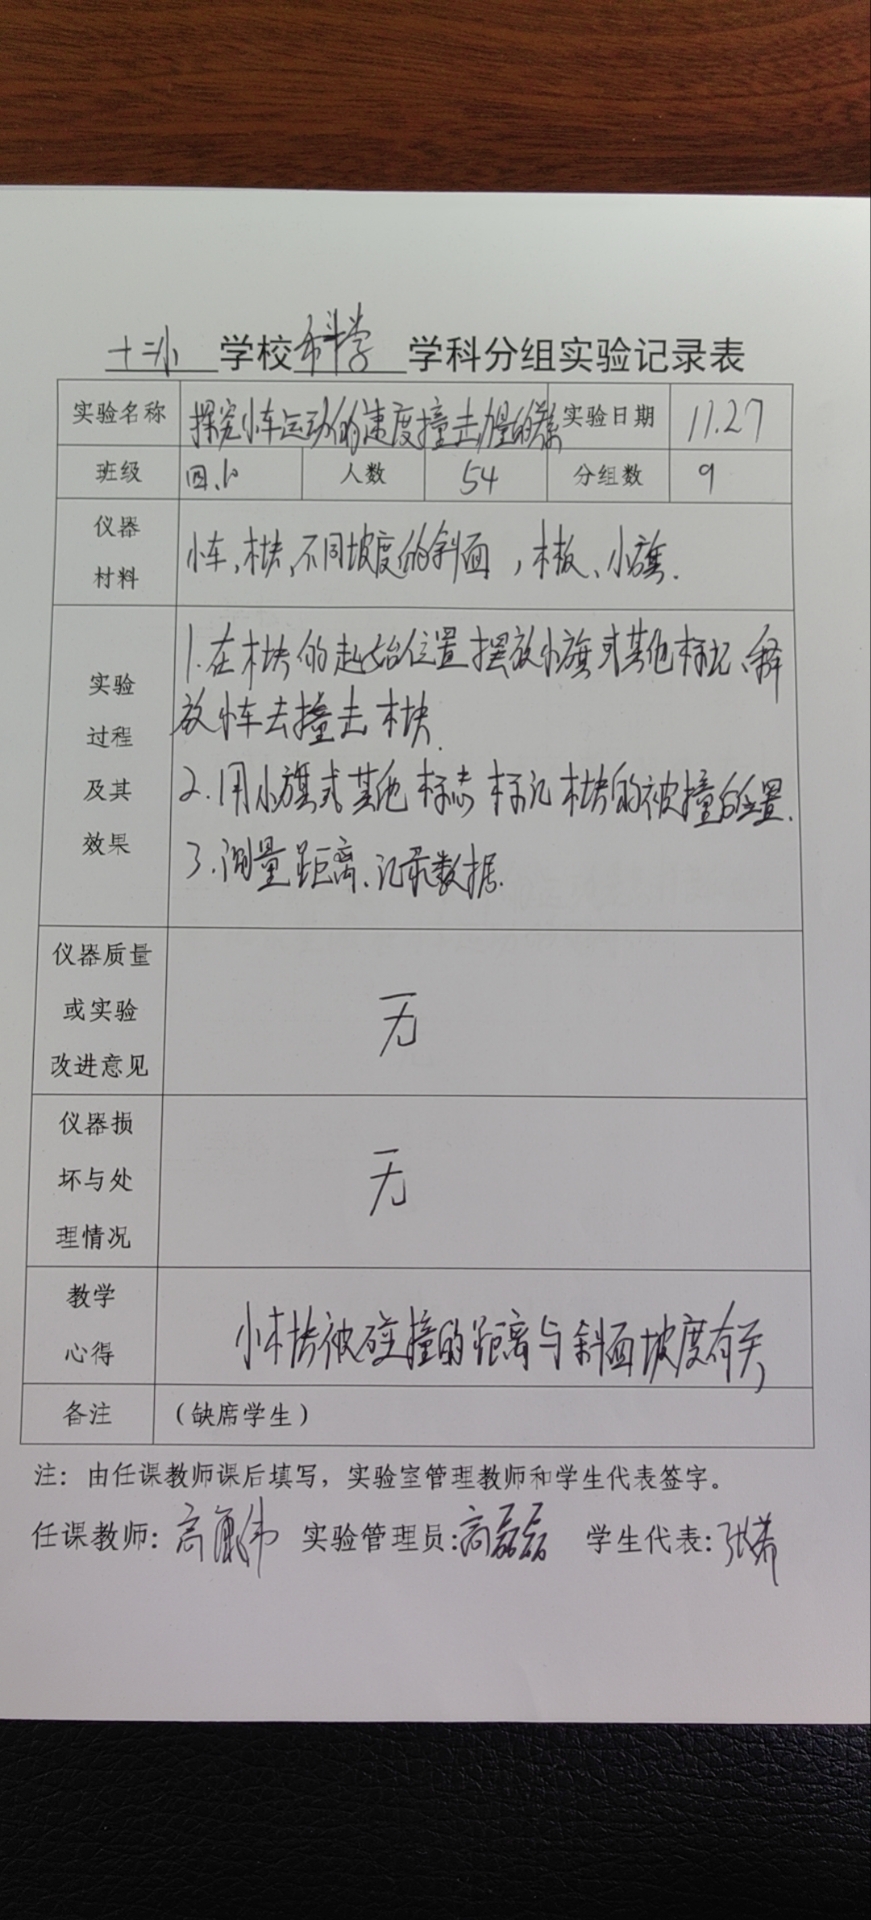 十二小 学校 科学 学科分组实验记录表
实验名称 探究小车运动的速度撞击力量的 实验日期 11.27
班级 四. 人数 54 分组数 9
仪器
材料
小车、木块、不同坡度的斜面,木板、小旗.
实验
过程
及其
效果
1.在木块的起始位置摆放小旗或其他标记、释
放小车去撞击木块.
2.用小旗或其他标志标记木块的被撞的位置.
3.测量距离、记录数据.
仪器质量
或实验
改进意见
无
仪器损
坏与处
理情况
无
教学
心得
小木块被碰撞的距离与斜面坡度有关
备注 (缺席学生)
注: 由任课教师课后填写, 实验室管理教师和学生代表签字。
任课教师: 高 伟 实验管理员: 高磊磊 学生代表: 张